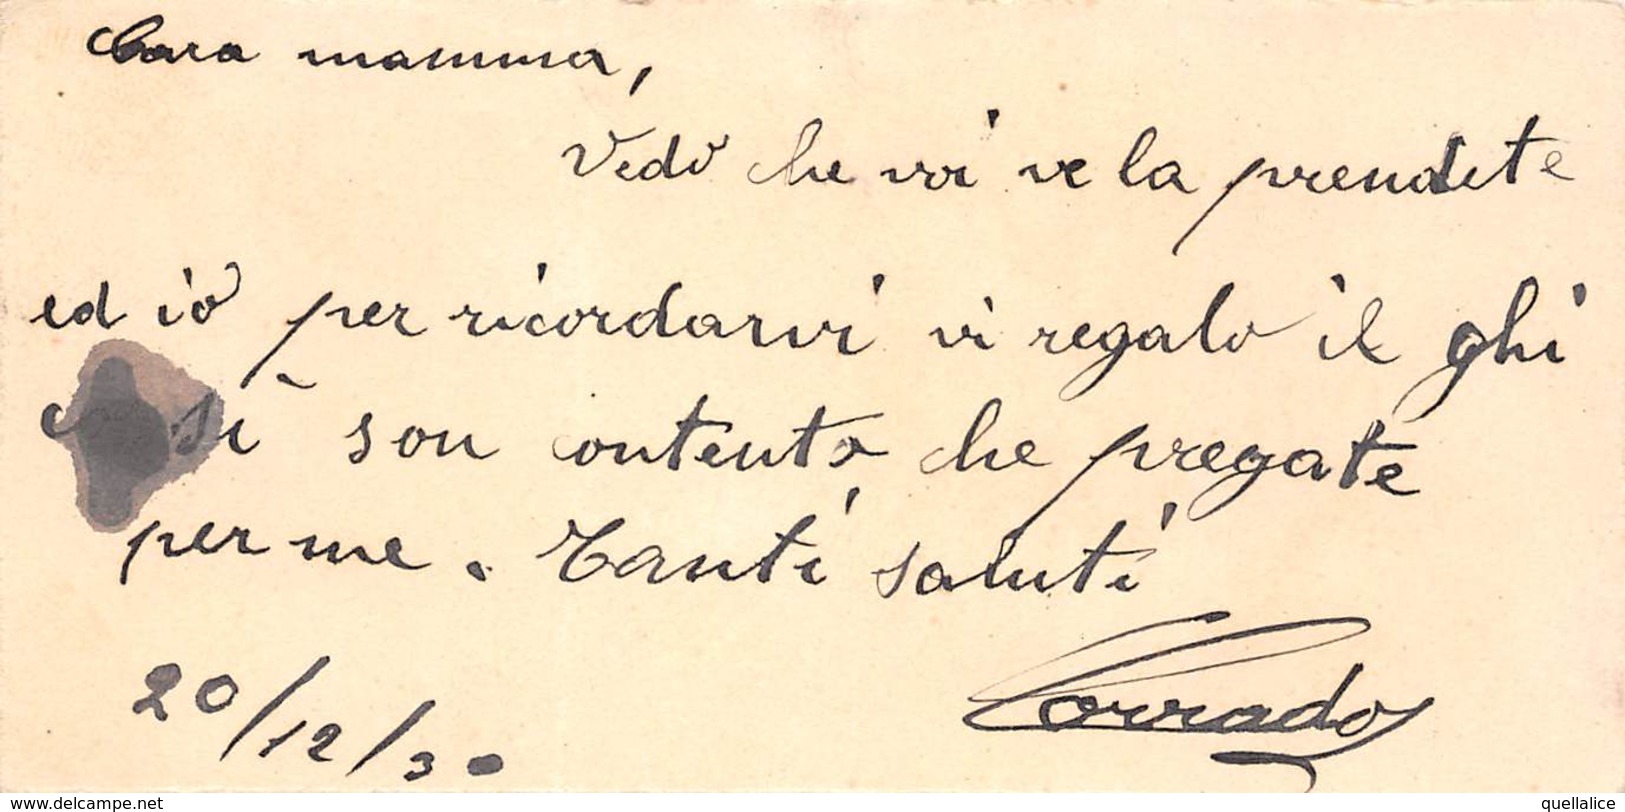 Cara mamma,
Vedo che voi ve la prendete
ed io per ricordarvi vi regalo il ghi
così son contento che pregate
per me. Tanti saluti
Corrado
20/12/30
www.delcampe.net
quellalice